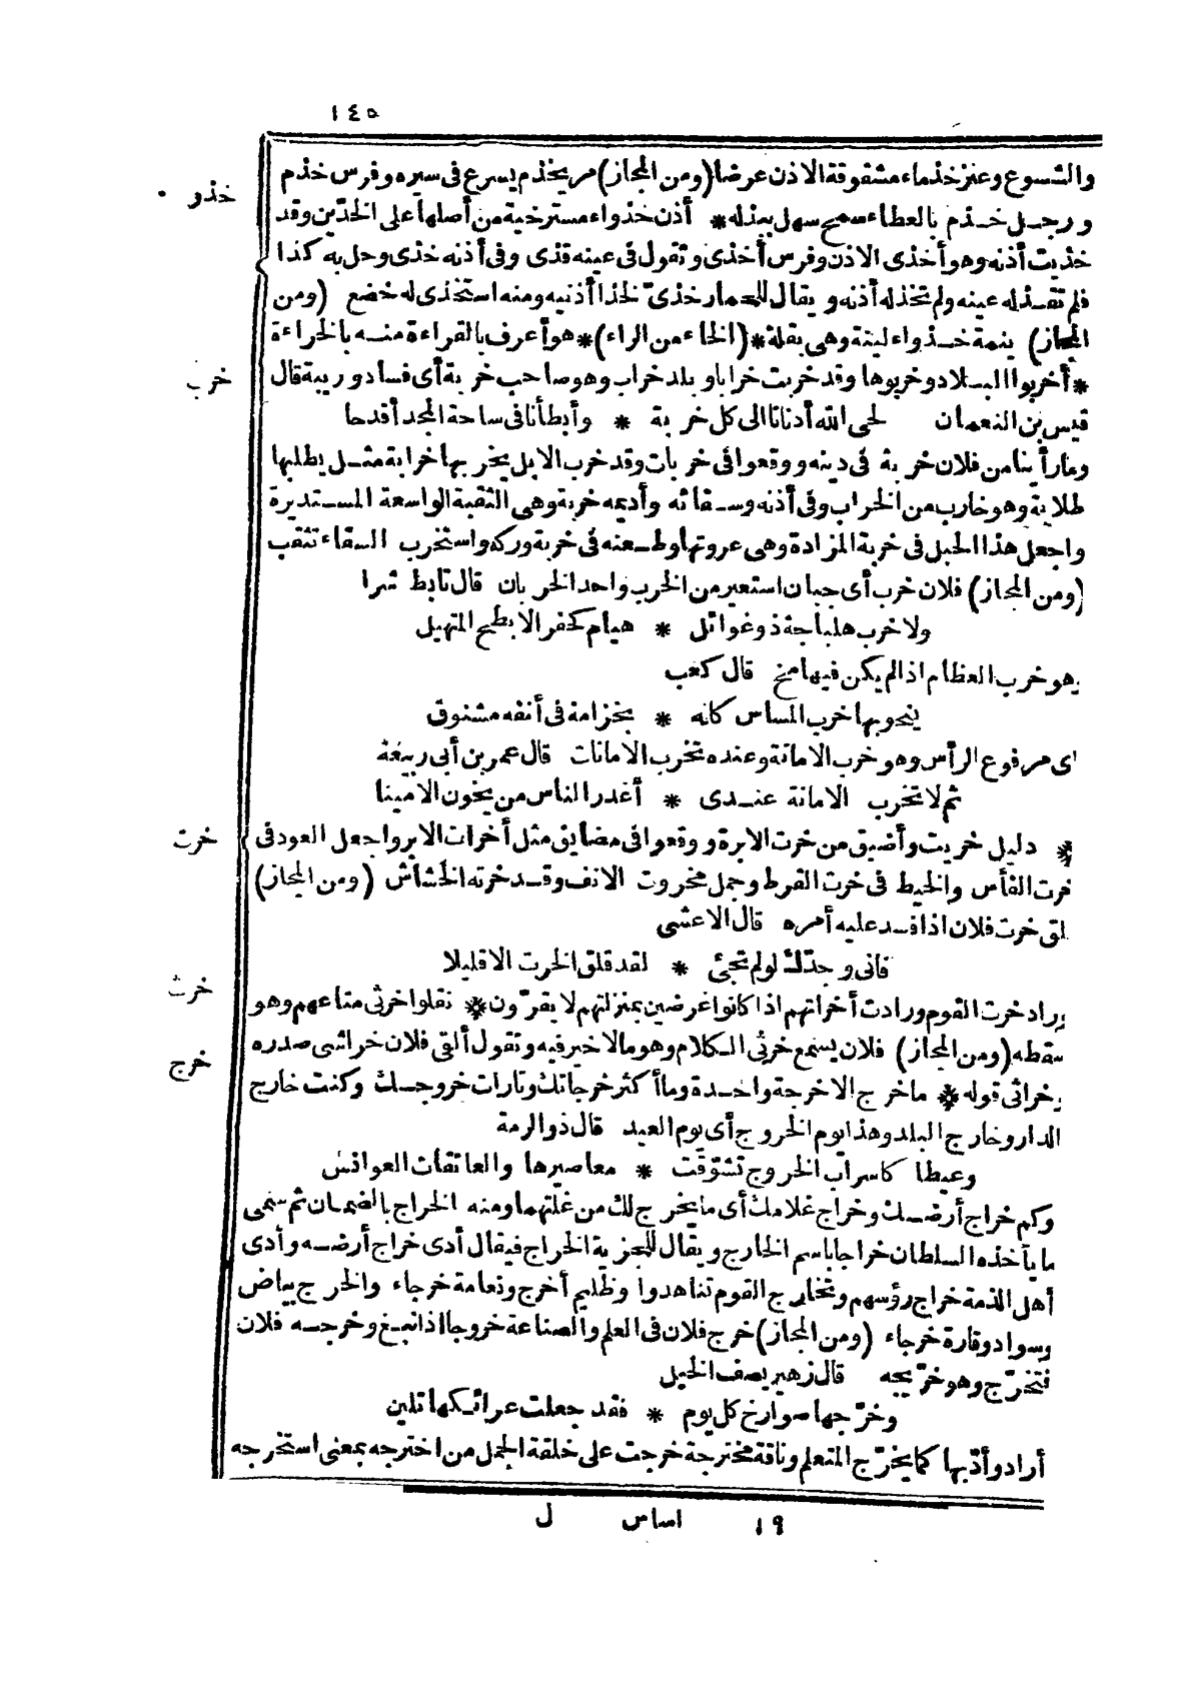 ١٤٥
والشسوع وعنز خذماء مشقوقة الاذن عرضا (ومن المجاز) مر يخذم يسرع في سيره وفرس خذم
خذو
ورجل خذم بالعطاء سمح سهل ببذله * أذن خذواء مسترخية من أصلها على الخدّين وقد
خذيت أذنه وهو أخذى الاذن وفرس أخذى وتقول في عينه قذى وفي أذنه خذى وحل به كذا
فلم تقذ له عينه ولم تخذ له أذنه ويقال للحمار خذىّ لخذا أذنيه ومنه استخذى له خضع (ومن
المجاز) ينمة خذواء لينة وهى بقلة * (الخاء من الراء) * هو أعرف بالقراءة منه بالخراءة
خرب
* أخربوا البلاد وخربوها وقد خربت خرابا وبلد خراب وهو صاحب خربة أى فساد وريبة قال
قيس بن النعمان لحى الله أدنانا الى كل خربة * وأبطأنا فى ساحة المجد أقدحا
وما رأينا من فلان خربة فى دينه ووقعوا فى خربات وقد خرب الابل يخربها خرابة مثل يطلبها
طلابة وهو خارب من الخراب وفى أذنه وسقائه وأديمه خربة وهى الثقبة الواسعة المستديرة
واجعل هذا الحبل فى خربة المزادة وهى عروتها وطعنه فى خربة وركه واستخرب السقاء تثقب
(ومن المجاز) فلان خرب أى جبان استعير من الخرب واحد الخربان قال تابط شرا
ولا خرب هلباجة ذو غوائل * هيام كجفر الابطح المتهيل
وهو خرب العظام اذا لم يكن فيها مخ قال كعب
ينحو بها خرب المساس كانه * بخزامة فى أنفه مشنوق
اى مرفوع الرأس وهو خرب الامانة وعنده تخرب الامانات قال عمر بن أبى ربيعة
ثم لا تخرب الامانة عندى * أغدر الناس من يخون الامينا
خرت
* دليل خريت وأضيق من خرت الابرة ووقعوا فى مضايق مثل أخرات الابر واجعل العود فى
خرت الفأس والخيط فى خرت القرط وجمل مخروت الانف وقد خرته الخشاش (ومن المجاز)
قلق خرت فلان اذا فسد عليه أمره قال الاعشى
فانى وجدّك لو لم تجئ * لقد قلق الخرت الا قليلا
خرث
وراد خرت القوم ورادت أخراتهم اذا كانوا غرضين بمنزلتهم لا يقرّون * نقلوا خرثى متاعهم وهو
سقطه (ومن المجاز) فلان يسمع خرثى الكلام وهو مالا خير فيه وتقول ألقى فلان خراشى صدره
خرج
وخراثى قوله * ما خرج الا خرجة واحدة وما أكثر خرجاتك وتارات خروجك وكنت خارج
الدار وخارج البلد وهذا يوم الخروج أى يوم العيد قال ذو الرمة
وعيطا كاسراب الخروج تشوّقت * معاصيرها والعاتقات العوانس
وكم خراج أرضك وخراج غلامك أى ما يخرج لك من غلتهما ومنه الخراج بالضمان ثم سمى
ما يأخذه السلطان خراجا باسم الخارج ويقال للجزية الخراج فيقال أدى خراج أرضه وأدى
أهل الذمة خراج رؤسهم وتخارج القوم تناهدوا وظليم أخرج ونعامة خرجاء والخرج بياض
وسواد وقارة خرجاء (ومن المجاز) خرج فلان فى العلم والصناعة خروجا اذا نبغ وخرجه فلان
فتخرّج وهو خرّيجه قال زهير يصف الخيل
وخرّجها صوارخ كل يوم * فقد جعلت عرائكها تلين
أراد وأدّبها كما يخرّج المتعلم وناقة مخترجة خرجت على خلقة الجمل من اخترجه بمعنى استخرجه
١٩ اساس ل